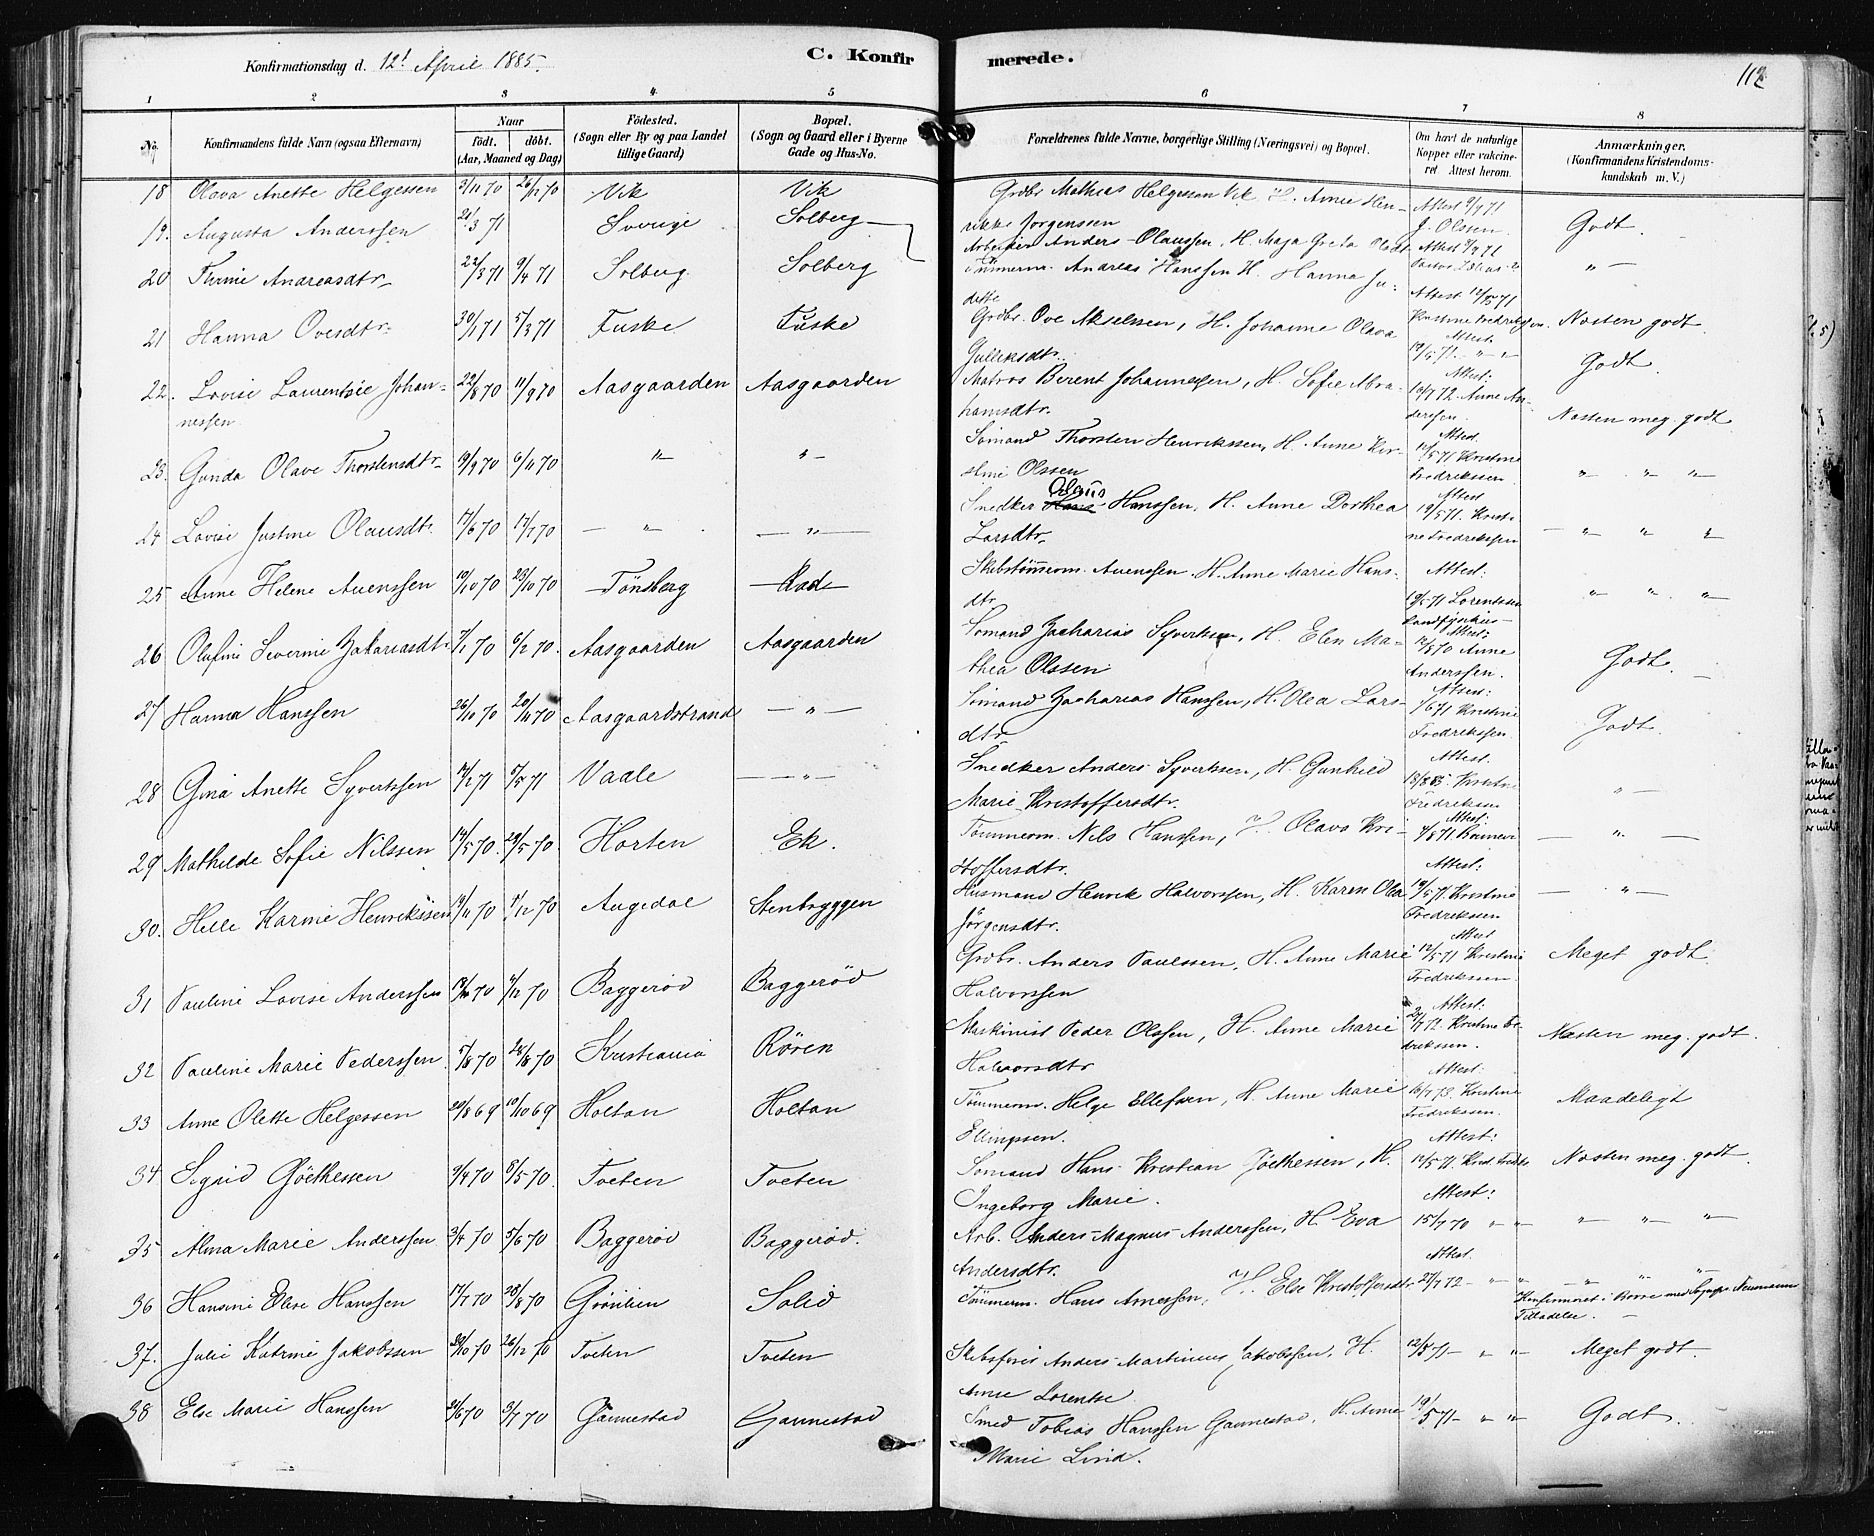 Konfirmationsdag d. 12t April 1885.
C. Konfirmerede.
112
1 2 3 4 5 6 7 8
No.
Konfirmandens fulde Navn (ogsaa Efternavn)
Naar
födt. döbt.
(Aar, Maaned og Dag)
Födested.
(Sogn eller By og paa Landet
tillige Gaard)
Bopæl.
(Sogn og Gaard eller i Byerne
Gade og Hus-No.
Forældrenes fulde Navne, borgerlige Stilling (Næringsvei) og Bopæl.
Om havt de naturlige
Kopper eller vakcine-
ret. Attest herom.
Anmærkninger.
(Konfirmandens Kristendoms-
kundskab m. V.)
18 Olava Anette Helgessen 3/11 70 26/12 70 Vik Vik Grdbr Mathias Helgessen Vik H. Anne Hen-
rikke Jørgenssen Attest 9/9 71 J. Olssen Godt.
19. Augusta Anderssen 21/3 71 Sverige Solberg Arbeider Anders Olaussen, H. Maja Greta Attest 9/9 71
20 Thrine Andreasdtr 22/3 71 9/4 71 Solberg Solberg Tømmerm. Andreas Hanssen H. Hanna Ju-
dette Attest 12/5 71 Kristine Fredrikssen. " —
21 Hanna Ovesdtr 30/1 71 5/3 71 Fuske Fuske Grdbr. Ove Akselssen, H. Johanne Olava
Gulliksdtr. Attest. 12/5 71. " " Næsten godt
22. Lovise Laurentsie Johan-
nessen 22/8 70 11/9 70 Aasgaarden Aasgaarden Matros Berent Johannessen, H. Sofie Abra-
hamsdtr. Attest: 10/7 72. Anne An-
derssen. Godt.
23. Gunda Olave Thorstensdtr 19/9 70 6/11 70 " " — Sømand Thorsten Henrikssen, H. Anne Kir-
stine Olssen Attest 12/5 71 Kristine
Fredrikssen. Næsten meg. godt
24 Lovise Justine Olausdt. 17/6 70 17/7 70 — " — — " — Snedker Olaus Hanssen, H. Anne Dorthea
Larsdtr Attest 12/5 71. Kristi-
ne Fredrikssen — " " "
25 Anne Helene Auenssen 10/10 70 23/10 70 Tönsberg Rad Skibstømrerm. Auenssen. H. Anne Marie Hans-
dtr Attest: 19/5 71 Lorentssen " " "
26 Olafine Severine Zakariasdt. 7/1 70 6/2 70. Aasgaarden Aasgaarden Sømand Zacharias Syvertssen, H. Elen Ma-
thea Olssen Attest: 12/8 70 Anne
Anderssen. Godt.
27 Hanna Hanssen 26/10 70 20/11 70 Aasgaardstrand — " — Sømand Zacharias Hanssen, H. Olea Lars-
dtr Attest: 1/6 71 Kristine
Fredrikssen. Godt.
28 Gina Anette Syvertssen 14/2 71 5/5 71 Vaale — " — Snedker Anders Syvertssen, H. Gunhild
Marie Kristoffersdtr. Attest. Kristine
Fredrikssen " —
29 Mathilde Sofie Nilssen 14/5 70. 29/5 70. Horten Ek. Tømmerm. Nils Hanssen, H. Olava Kri-
stoffersdtr. Attest: — " —
30. Helle Karine Henrikssen 19/11 70 4/12 70 Augedal Stenbryggen Husmand Henrik Halvorssen, H. Karen Olea
Jörgensdtr. Attest: 19/5 71. Kristine
Fredrikssen — " —
31 Pauline Lovise Anderssen 4/12 70 Baggeröd Baggeröd Grdbr. Anders Paulssen, H. Anne Marie
Halvorssen Attest 12/5 71 Kristine
Fredrikssen Meget godt.
32 Pauline Marie Pederssen 5/8 70 28/8 70 Kristiania Rören Maskinist Peder Olssen, H. Anne Marie
Halvorsdtr Attest: 2/7 72. Kristine Fr-
drikssen. Næsten meg. godt.
33 Anne Olette Helgessen 20/8 69 10/10 69 Holtan Holtan Tømmerm. Helge Ellefssen, H. Anne Marie
Ellingssen. Attest: 16/7 73. Kristine
Fredrikssen. Maadeligt
34 Sigrid Göethessen 9/4 70 8/5 70. Tveten Tveten Sømand Hans Kristian Göethessen, H.
Ingeborg Marie. Attest: 12/5 71. Krist. Fredks Næsten meg. godt.
35 Alma Marie Anderssen 3/4 70 5/6 70 Baggeröd Baggeröd. Arb. Anders Magnus Anderssen, H. Eva
Andersdtr. Attest: 15/7 70 " " " " "
36 Hansine Elise Hanssen 17/7 70 28/8 70 Grönlien Solid Tømmerm. Hans Arnessen, H. Else Kristoffersdtr Attest. 27/7 72 — " " — " " "
Konfirmeret i Borre med Sognepr Neumanns
Tilladelse. —
37. Julie Katrine Jakobssen 30/10 70 26/12 70 Tveten Tveten Skibsfører Anders Martinius Jakobssen, H.
Anne Lorentse 12/5 71 — " " Meget godt.
38 Else Marie Hanssen 3/7 70 Gannestad Gannestad Smed Tobias Hanssen Gannestad, H. Anne
Marie Lind. 19/5 71 — " " Godt.